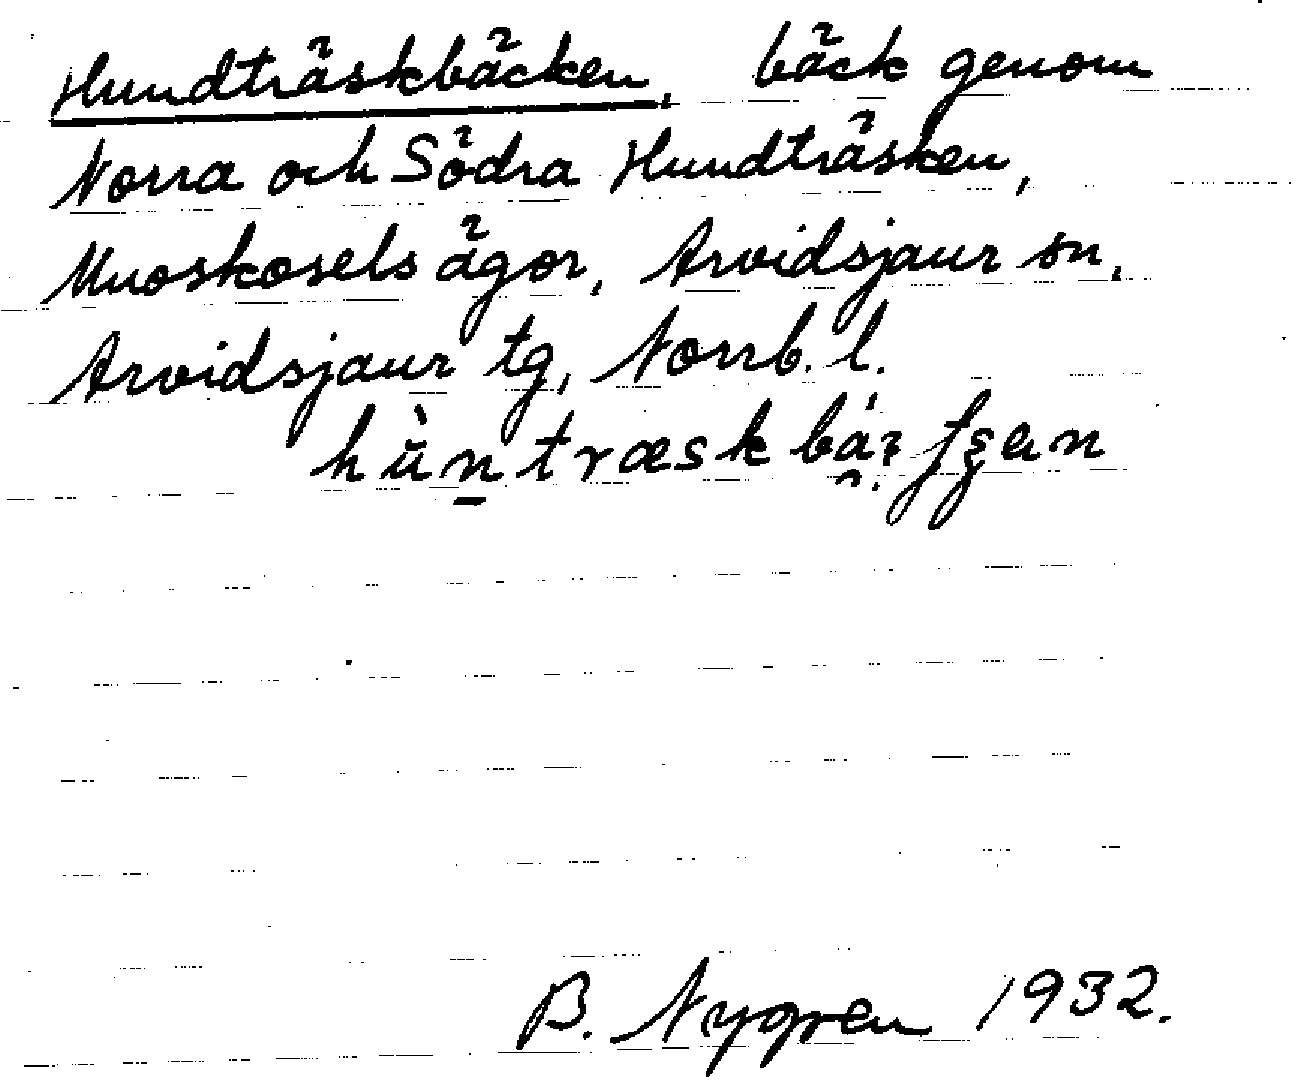 Hundträskbäcken, bäck genom
Norra och Södra Hundträsken,
Muoskosels ägor, Arvidsjaur sn,
Arvidsjaur tg, Norrb. l.
hùntræskbá
B. Nygren 1932.